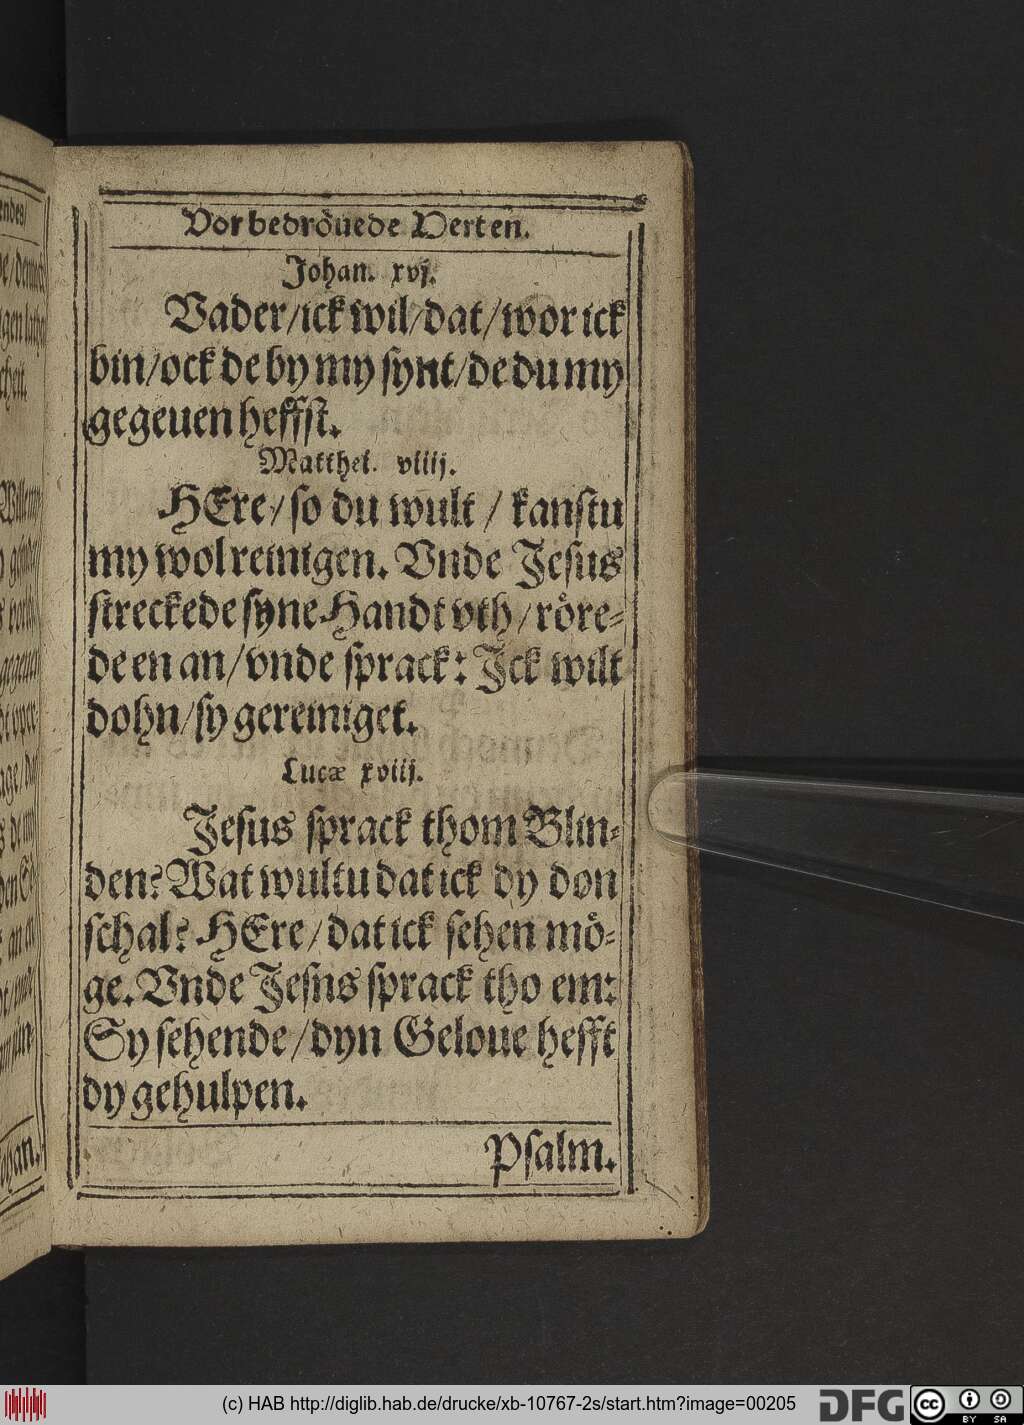 Vor bedröuede Herten.
Johan. xvj.
Vader/ ick wil/ dat/ wor ick
bin/ ock de by my synt/ de du my
gegeuen heffst.
Matthei. viiij.
HEre/ so du wult / kanstu
my wol reinigen. Vnde Jesus
streckede syne Handt vth/ röre-
de en an/ vnde sprack: Jck wilt
dohn/ sy gereiniget.
Lucæ xviij.
Jesus sprack thom Blin-
den? Wat wultu dat ick dy don
schal? HEre/ dat ick sehen mö-
ge. Vnde Jesus sprack tho em:
Sy sehende/ dyn Geloue hefft
dy gehulpen.
Psalm.
(c) HAB http://diglib.hab.de/drucke/xb-10767-2s/start.htm?image=00205
DFG
cc
BY SA